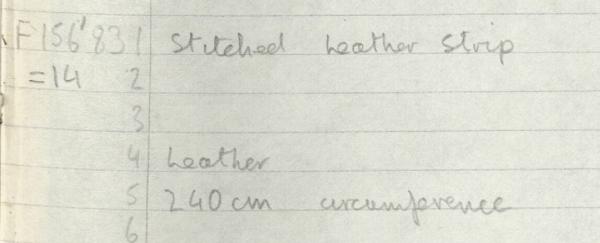 F156'83 1 Stitched leather strip
=14 2
3
4 leather
5 240cm circumference
6